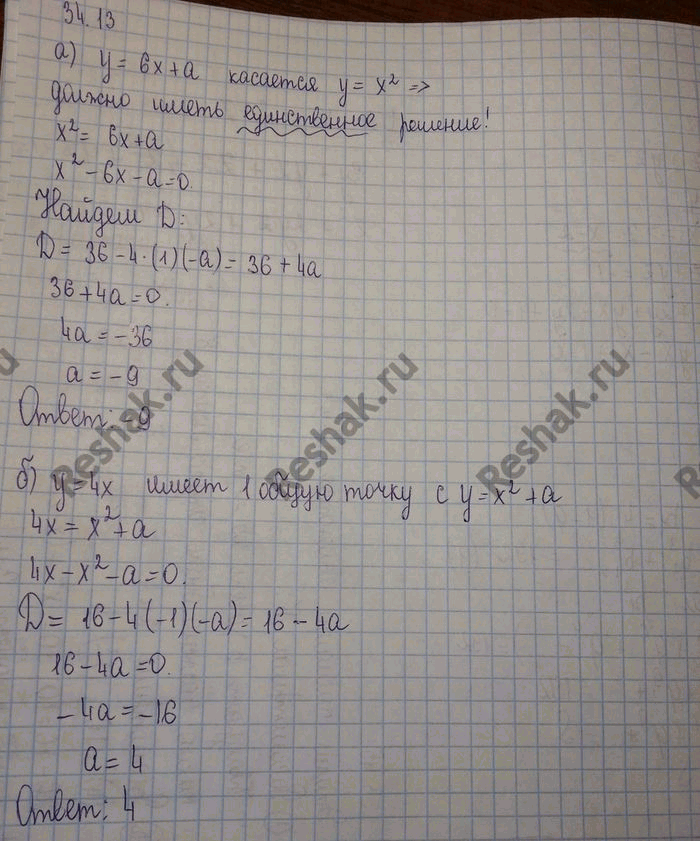 34.13
а) y = 6x+a касается y = x² ⇒
должно иметь единственное решение!
x² = 6x+a
x² - 6x - a = 0.
Найдем D:
D = 36 - 4·(1)(-a) = 36 + 4a
36+4a = 0.
4a = -36
a = -9
Ответ: -9
Reshak.ru Reshak.ru Reshak.ru
б) y = 4x имеет 1 общую точку с y = x² + a
4x = x² + a
4x - x² - a = 0.
D = 16 - 4(-1)(-a) = 16 - 4a
16 - 4a = 0.
-4a = -16
a = 4
Ответ: 4